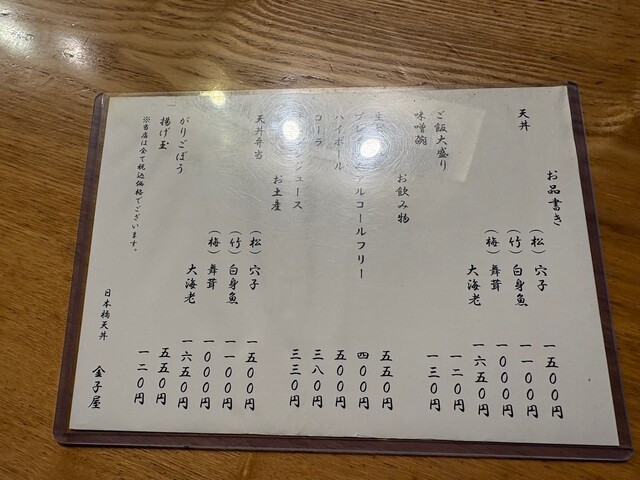 お品書き
天丼 (松) 穴子 一五〇〇円
(竹) 白身魚 一一〇〇円
(梅) 舞茸 一〇〇〇円
大海老 一六五〇円
ご飯大盛り 一二〇円
味噌碗 一三〇円
お飲み物
五五〇円
アルコールフリー 四〇〇円
ハイボール 五〇〇円
コーラ 三八〇円
ジュース 三三〇円
お土産
天丼弁当 (松) 穴子 一五〇〇円
(竹) 白身魚 一一〇〇円
(梅) 舞茸 一〇〇〇円
大海老 一六五〇円
がりごぼう 五五〇円
揚げ玉 一二〇円
※当店は全て税込価格でございます。
日本橋天丼 金子屋